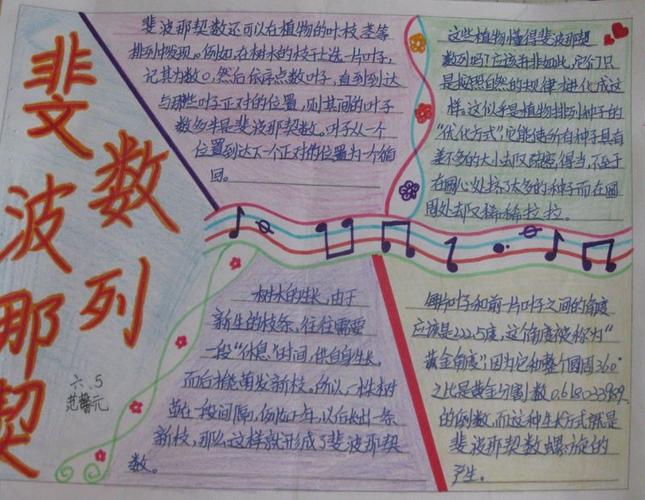 斐波那契
数列
六.5
范馨元
斐波那契数还可以在植物的叶、枝、茎等
排列中发现。例如,在树木的枝干上选一片叶子,
记其为数0,然后依序点数叶子,直到到达
与那些叶子正对的位置,则其间的叶子
数多半是斐波那契数。叶子从一个
位置到达下一个正对的位置为一个循
回。
这些植物懂得斐波那契
数列吗?应该并非如此,它们只
是按照自然的规律才进化成这
样。这似乎是植物排列种子的
“优化方式”,它能使所有种子具有
差不多的大小却又疏密得当,不至于
在圆心处挤了太多的种子而在圆
周处却又稀稀拉拉。
树木的生长,由于
新生的枝条,往往需要
一段“休息”时间,供自身生长,
而后才能萌发新枝。所以,一株树
苗在一段间隔,例如一年,以后长出一条
新枝,那么这样就形成了斐波那契
数。
每片叶子和前一片叶子之间的角度
应该是222.5度,这个角度被称为“
黄金角度”,因为它和整个圆周360°
之比是黄金分割数0.618033989
的倒数,而这种生长方式就是
斐波那契数螺旋的
产生。